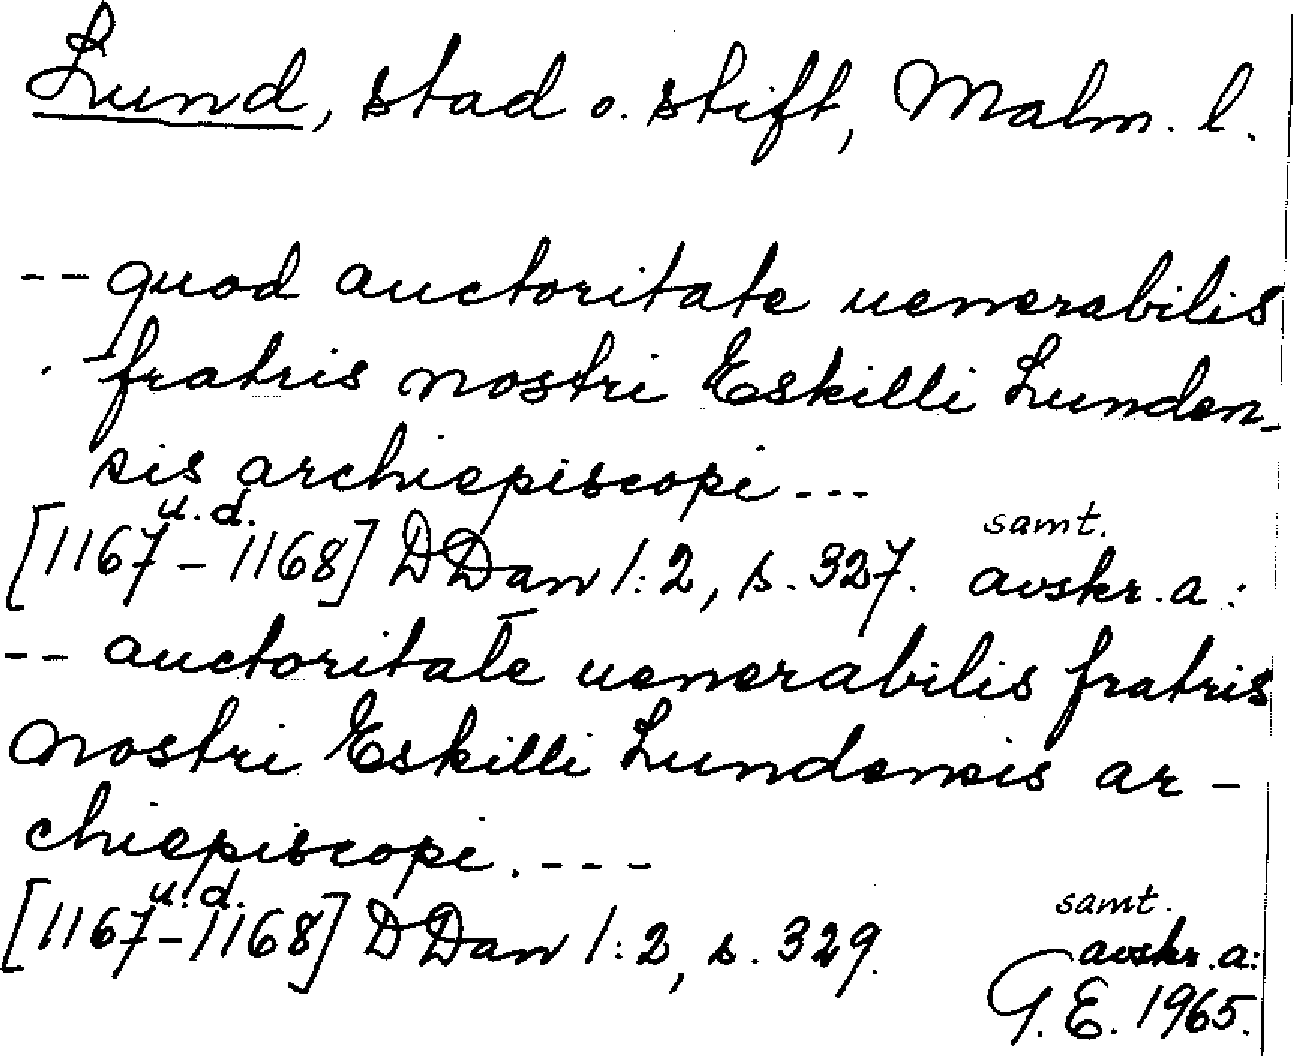 Lund, stad o. stift, Malm. l.
-- quod auctoritate uenerabilis
fratris nostri Eskilli Lunden-
sis archiepiscopi ---
u.d. samt.
[1167-1168] DDan 1:2, s. 327. avskr. a:
-- auctoritate uenerabilis fratris
nostri Eskilli Lundensis ar-
chiepiscopi. ---
u.d. samt.
[1167-1168] DDan 1:2, s. 329. avskr. a:
G.E. 1965.